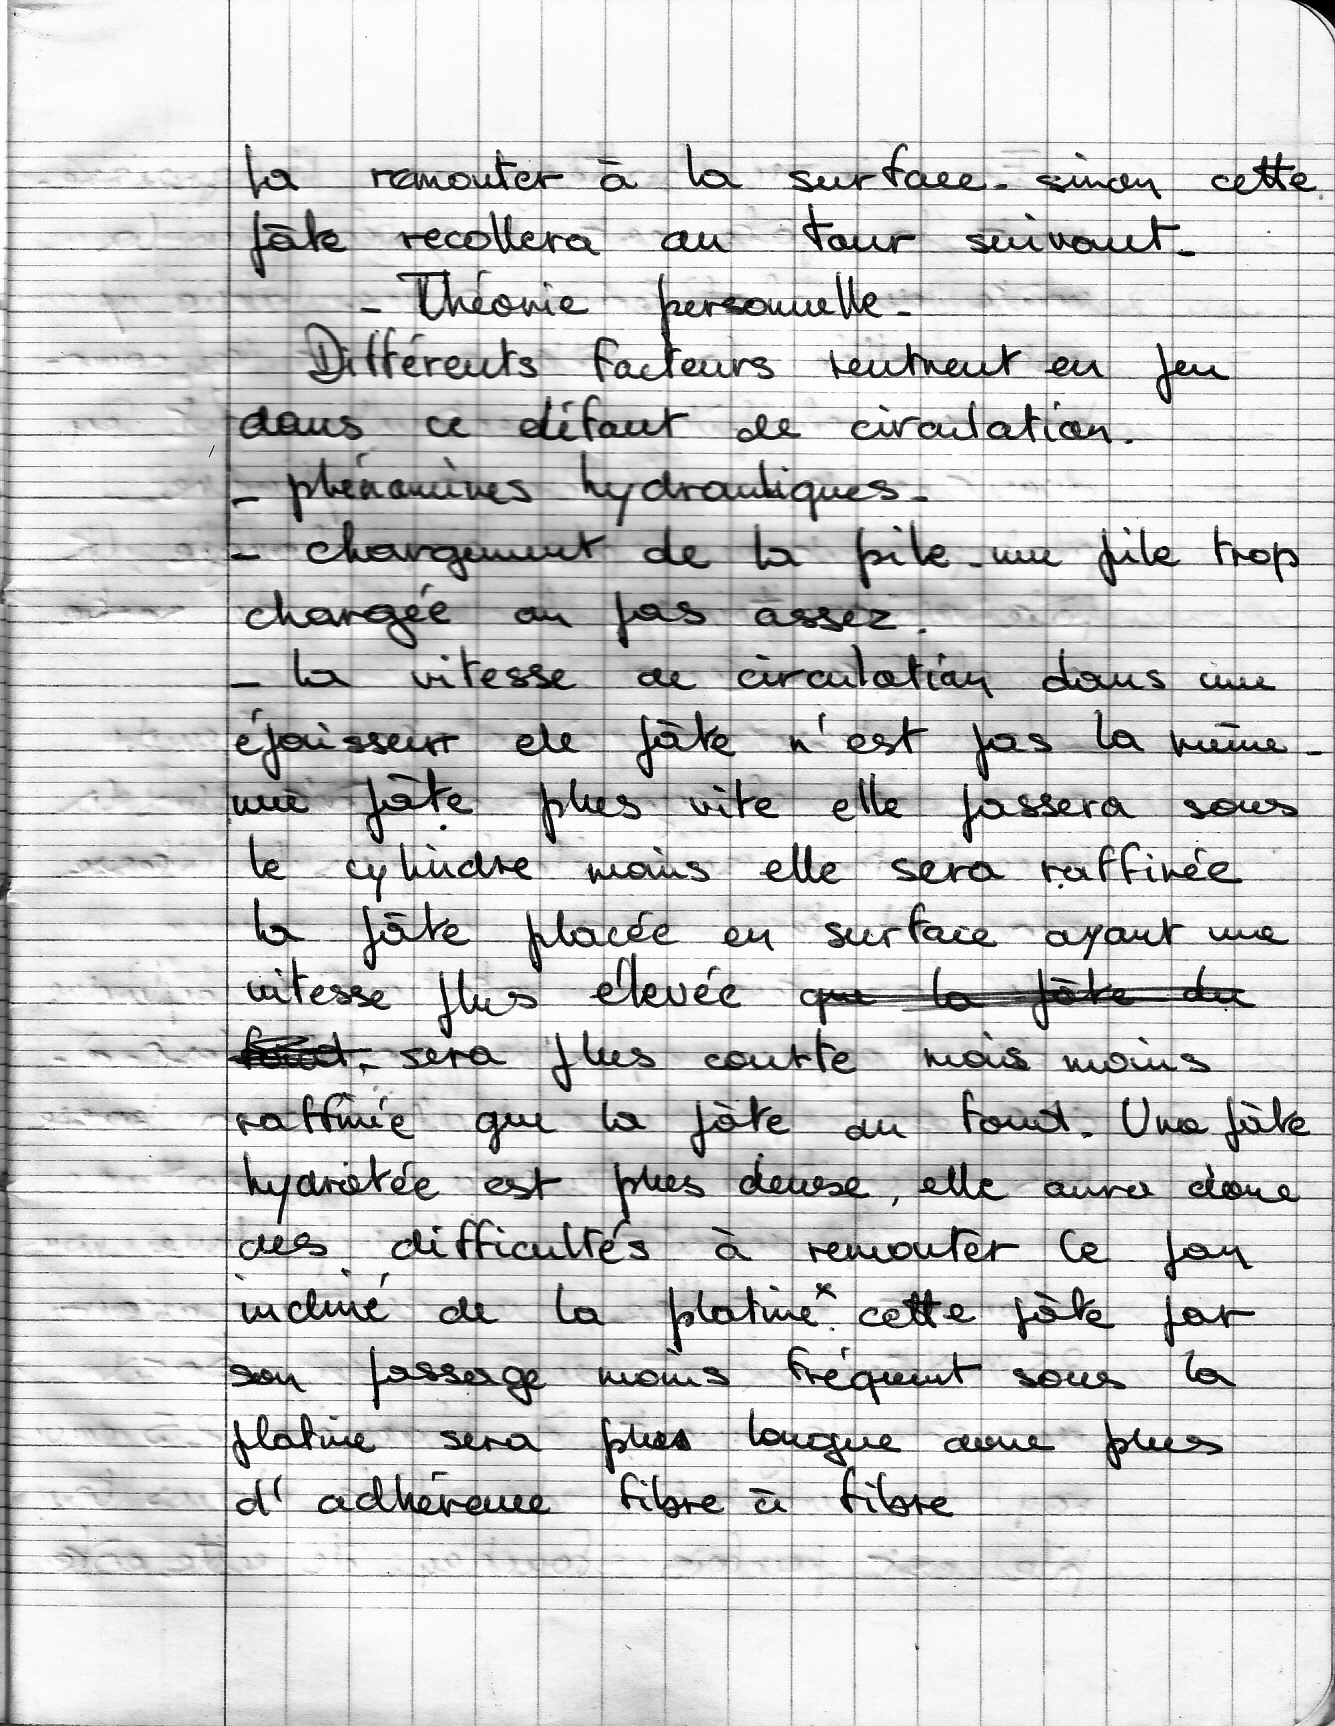 la remonter à la surface. sinon cette
pâte recollera au tour suivant.
- Théorie personnelle.
Différents facteurs rentrent en jeu
dans ce défaut de circulation.
- phénomènes hydrauliques.
- chargement de la pile. une pile trop
chargée ou pas assez.
- la vitesse de circulation dans une
épaisseur de pâte n'est pas la même.
une pâte plus vite elle passera sous
le cylindre moins elle sera raffinée
la pâte placée en surface ayant une
vitesse plus élevée que la pâte du
fond. sera plus courte mais moins
raffinée que la pâte du fond. Une pâte
hydratée est plus dense, elle aura donc
des difficultés à remonter le pan
incliné de la platine.* cette pâte par
son passage moins fréquent sous la
platine sera plus longue donc plus
d'adhérence fibre à fibre